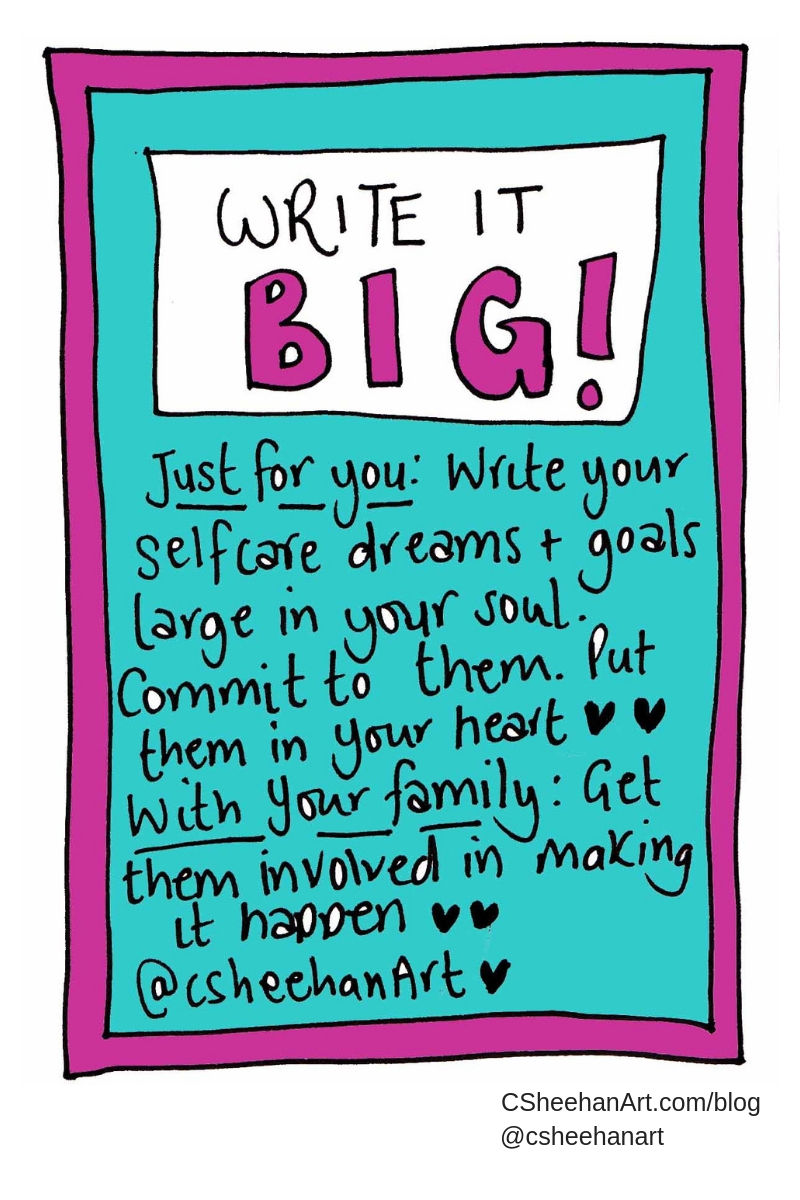 WRITE IT
BIG!
Just for you: Write your
selfcare dreams + goals
large in your soul.
Commit to them. Put
them in your heart
With your family: Get
them involved in making
it happen
@csheehanArt
CSheehanArt.com/blog
@csheehanart